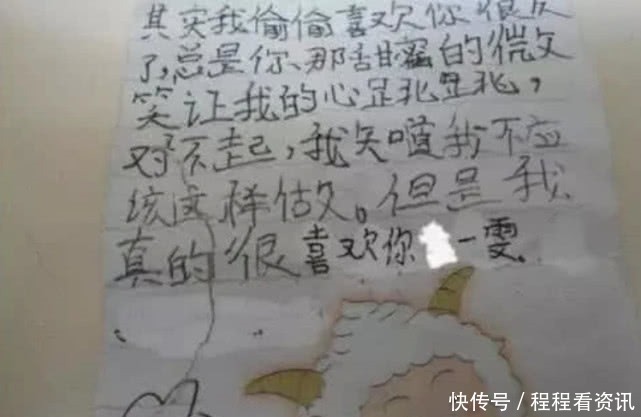 其实我偷偷喜欢你很久
了,总是你、那甜蜜的微
笑让我的心足兆足兆,
对不起,我知道我不应
该这样做。但是我
真的很喜欢你 一雯。
快传号/程程看资讯